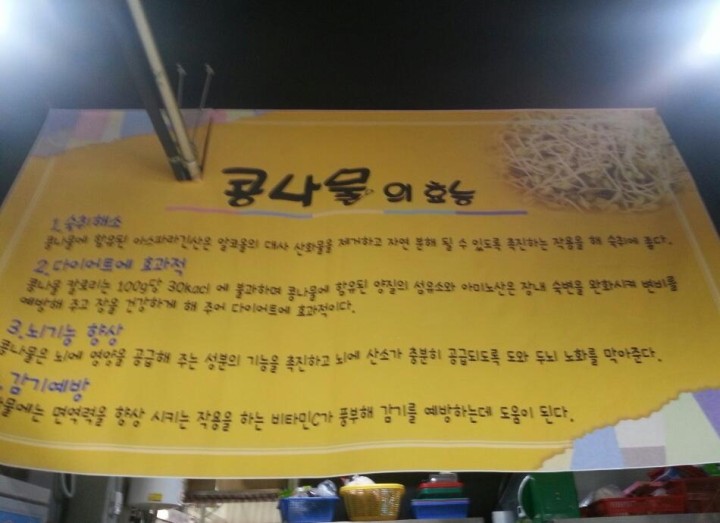 콩나물의 효능
1. 숙취해소
콩나물에 함유된 아스파라긴산은 알코올의 대사 산화물을 제거하고 자연 분해 될 수 있도록 촉진하는 작용을 해 숙취에 좋다.
2. 다이어트에 효과적
콩나물 칼로리는 100g당 30kacl 에 불과하며 콩나물에 함유된 양질의 섬유소와 아미노산은 장내 숙변을 완화시켜 변비를
예방해 주고 장을 건강하게 해 주어 다이어트에 효과적이다.
3. 뇌기능 향상
콩나물은 뇌에 영양을 공급해 주는 성분의 기능을 촉진하고 뇌에 산소가 충분히 공급되도록 도와 두뇌 노화를 막아준다.
. 감기예방
나물에는 면역력을 향상 시키는 작용을 하는 비타민C가 풍부해 감기를 예방하는데 도움이 된다.